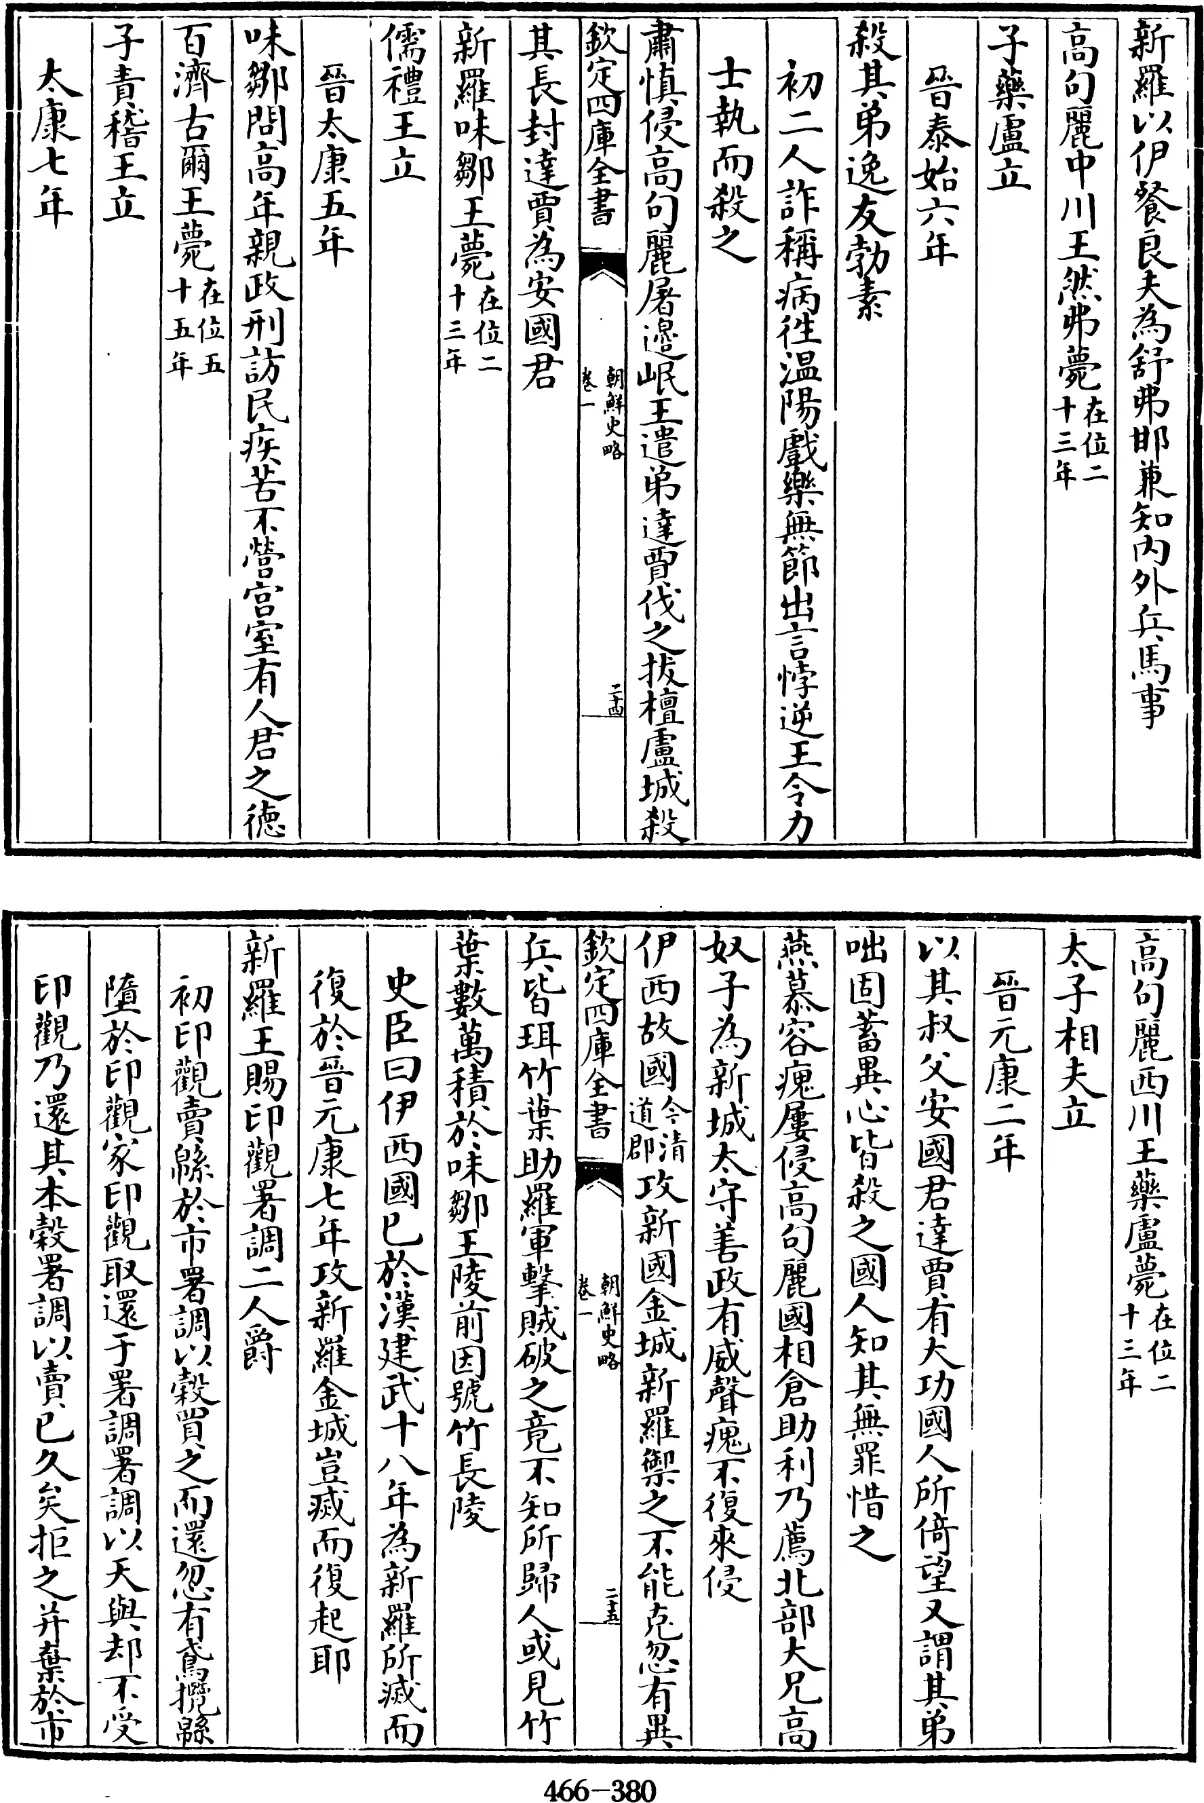 新羅以伊餐良夫為舒弗邯兼知内外兵馬事
高句麗中川王然弗薨在位二十三年
子藥盧立
晉泰始六年
殺其弟逸友勃素
初二人詐稱病往温陽戲樂無節出言悖逆王令力
士執而殺之
肅慎侵高句麗屠邉岷王遣弟達賈伐之拔檀盧城殺
欽定四庫全書
朝鮮史略
卷一
二十四
其長封達賈為安國君
新羅味鄒王薨在位二十三年
儒禮王立
晉太康五年
味鄒問高年親政刑訪民疾苦不營宫室有人君之德
百濟古爾王薨在位五十五年
子責稽王立
太康七年
高句麗西川王藥盧薨在位二十三年
太子相夫立
晉元康二年
以其叔父安國君達賈有大功國人所倚望又謂其弟
咄固蓄異心皆殺之國人知其無罪惜之
燕慕容瘣屢侵高句麗國相倉助利乃薦北部大兄高
奴子為新城太守善政有威聲瘣不復來侵
伊西故國今清道郡攻新國金城新羅禦之不能克忽有異
欽定四庫全書
朝鮮史略
卷一
二十五
兵皆珥竹葉助羅軍擊賊破之竟不知所歸人或見竹
葉數萬積於味鄒王陵前因號竹長陵
史臣曰伊西國已於漢建武十八年為新羅所滅而
復於晉元康七年攻新羅金城豈滅而復起耶
新羅王賜印觀署調二人爵
初印觀賣緜於市署調以穀買之而還忽有鳶攪緜
墮於印觀家印觀取還于署調署調以天與却不受
印觀乃還其本穀署調以賣已久矣拒之并棄於市
466-380